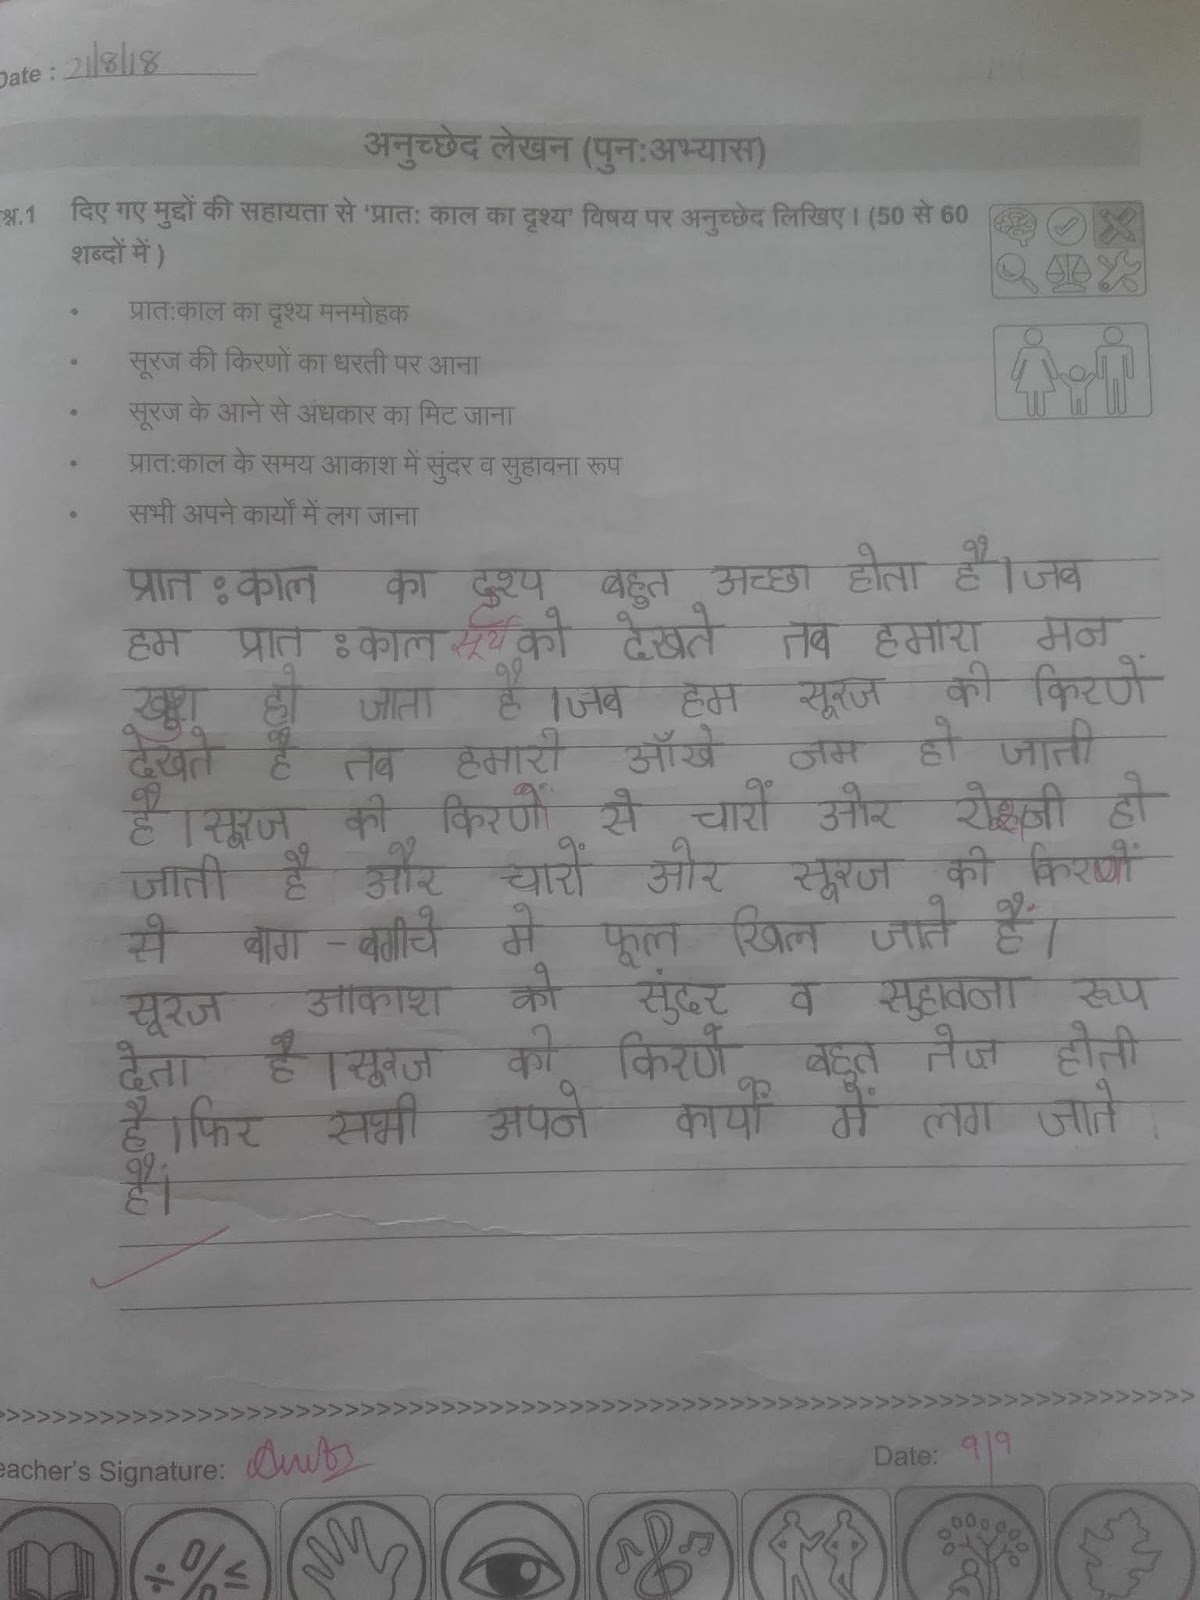 Date : 21/8/18
अनुच्छेद लेखन (पुन:अभ्यास)
श्न.1 दिए गए मुद्दों की सहायता से ‘प्रात: काल का दृश्य’ विषय पर अनुच्छेद लिखिए। (50 से 60
शब्दों में )
• प्रात:काल का दृश्य मनमोहक
• सूरज की किरणों का धरती पर आना
• सूरज के आने से अंधकार का मिट जाना
• प्रात:काल के समय आकाश में सुंदर व सुहावना रूप
• सभी अपने कार्यों में लग जाना
प्रात : काल का दृश्य बहुत अच्छा होता है । जब
हम प्रात : काल सूर्य को देखते तब हमारा मन
खुश हो जाता है । जब हम सूरज की किरणें
देखते है तब हमारी आँखे नम हो जाती
है । सूरज की किरणों से चारों ओर रोशनी हो
जाती है और चारों ओर सूरज की किरणों
से बाग - बगीचे मे फूल खिल जाते हैं ।
सूरज आकाश को सुंदर व सुहावना रूप
देता है । सूरज की किरणे बहुत तेज होती
है । फिर सभी अपने कार्यों में लग जाते
हैं ।
eacher's Signature:
Date: 9/9